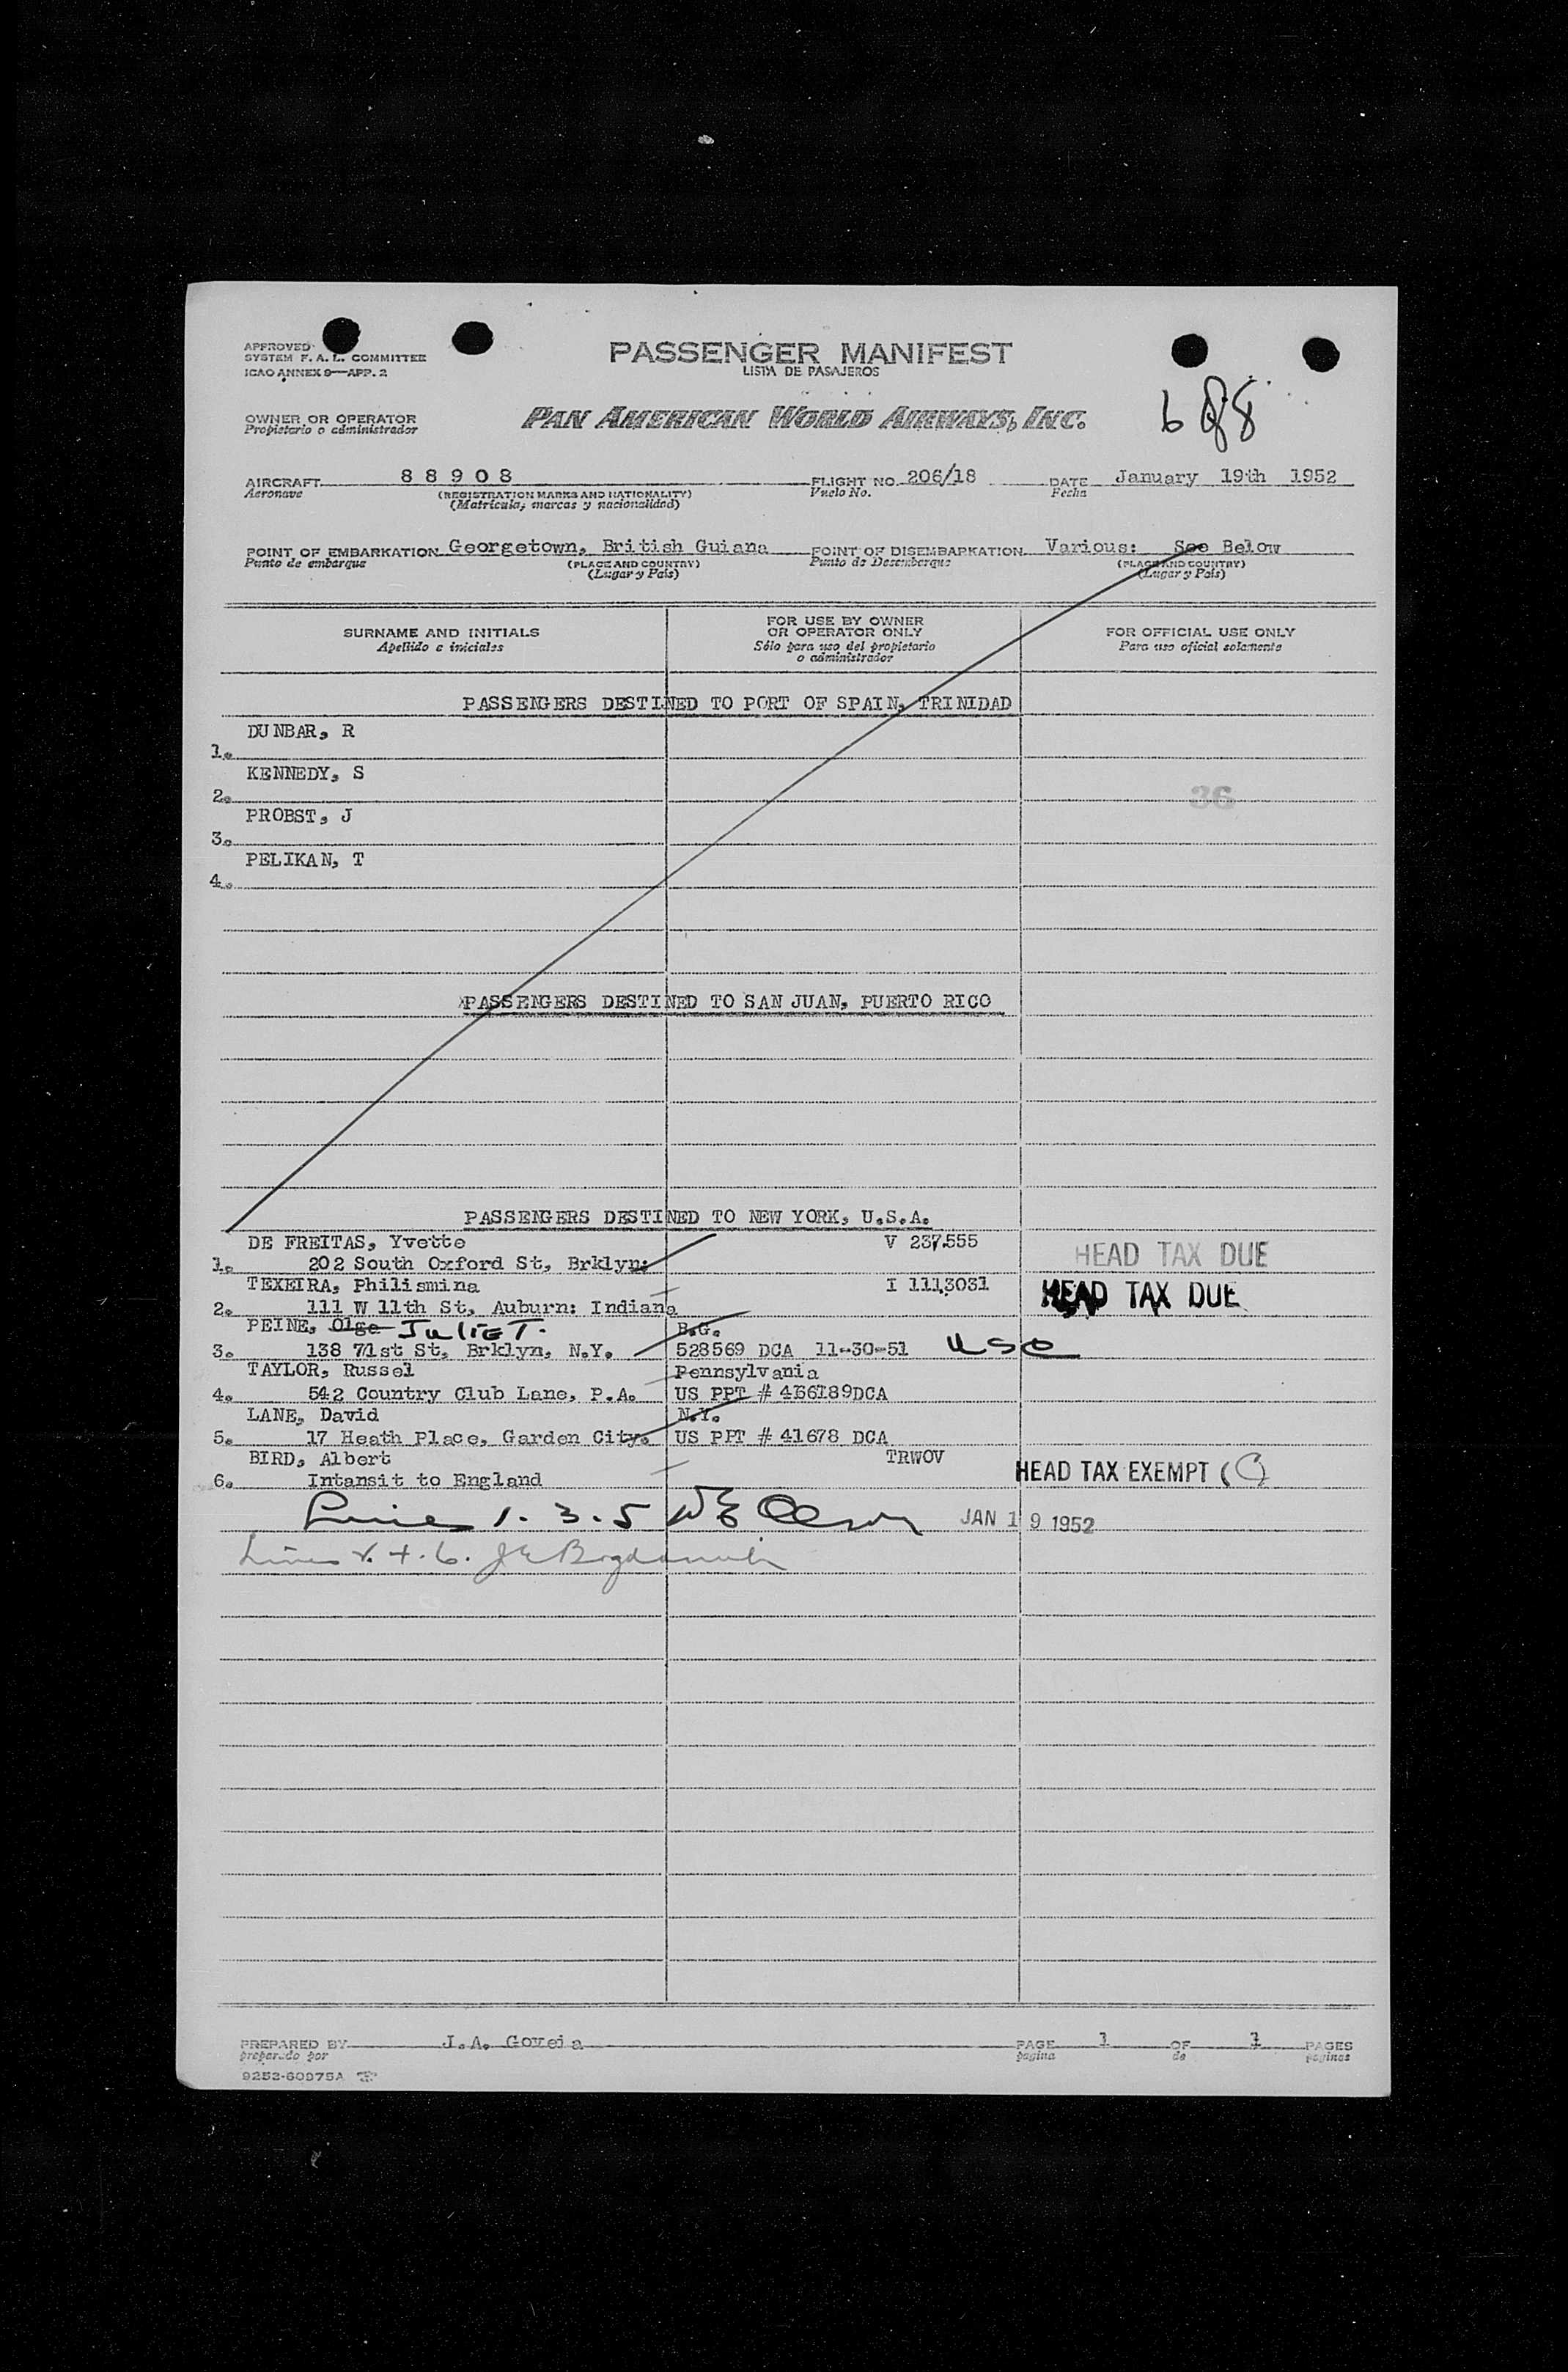 APPROVED
SYSTEM F. A. L. COMMITTEE
ICAO ANNEX 9—APP. 2
PASSENGER MANIFEST
LISTA DE PASAJEROS
OWNER OR OPERATOR
Propietario o administrador
PAN AMERICAN WORLD AIRWAYS, INC.
688
AIRCRAFT 88908 FLIGHT NO. 206/18 DATE January 19th 1952
Aeronave (REGISTRATION MARKS AND NATIONALITY) Vuelo No. Fecha
(Matrícula, marcas y nacionalidad)
POINT OF EMBARKATION Georgetown, British Guiana POINT OF DISEMBARKATION Various: See Below
Punto de embarque (PLACE AND COUNTRY) Punto de Desembarque (PLACE AND COUNTRY)
(Lugar y País) (Lugar y País)
SURNAME AND INITIALS
Apellido e iniciales
FOR USE BY OWNER
OR OPERATOR ONLY
Sólo para uso del propietario
o administrador
FOR OFFICIAL USE ONLY
Para uso oficial solamente
PASSENGERS DESTINED TO PORT OF SPAIN, TRINIDAD
DUNBAR, R
1.
KENNEDY, S
2. 36
PROBST, J
3.
PELIKAN, T
4.
PASSENGERS DESTINED TO SAN JUAN, PUERTO RICO
PASSENGERS DESTINED TO NEW YORK, U.S.A.
DE FREITAS, Yvette V 237555
1. 202 South Oxford St, Brklyn: HEAD TAX DUE
TEXEIRA, Philismina I 1113031
2. 111 W 11th St, Auburn: Indiana HEAD TAX DUE
PEINE, Olge JULIET. B.G.
3. 138 71st St, Brklyn, N.Y. 528569 DCA 11-30-51 USC
TAYLOR, Russel Pennsylvania
4. 542 Country Club Lane, P.A. US PPT # 456189DCA
LANE, David N.Y.
5. 17 Heath Place, Garden City. US PPT # 41678 DCA
BIRD, Albert TRWOV
6. Intansit to England HEAD TAX EXEMPT (C)
Lines 1. 3. 5 JAN 19 1952
Lines 2. 4. 6.
PREPARED BY J.A. Goveia PAGE 1 OF 1 PAGES
preparado por pagina de paginas
9252-60975A